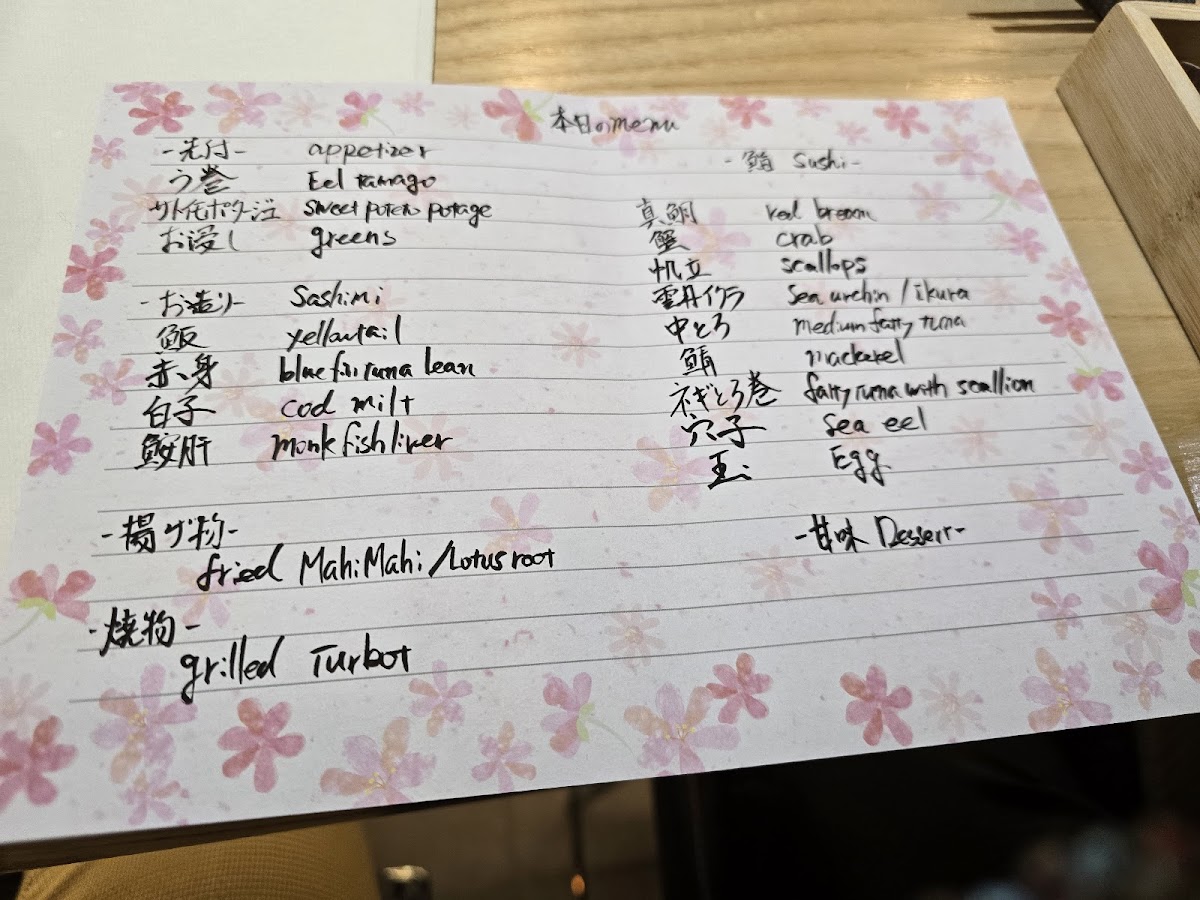 本日のmenu
-先付- appetizer
う巻 Eel tamago
サツマイモポタージュ sweet potato potage
お浸し greens
-お造り- Sashimi
鰤 yellowtail
赤身 bluefin tuna lean
白子 cod milt
鮟肝 monkfish liver
-揚げ物-
fried MahiMahi /Lotus root
-焼物-
grilled Turbot
-鮨 Sushi-
真鯛 red bream
蟹 crab
帆立 scallops
雲丹イクラ sea urchin / ikura
中とろ medium fatty tuna
鯖 mackerel
ネギとろ巻 fatty tuna with scallion
穴子 sea eel
玉 Egg
-甘味 Dessert-